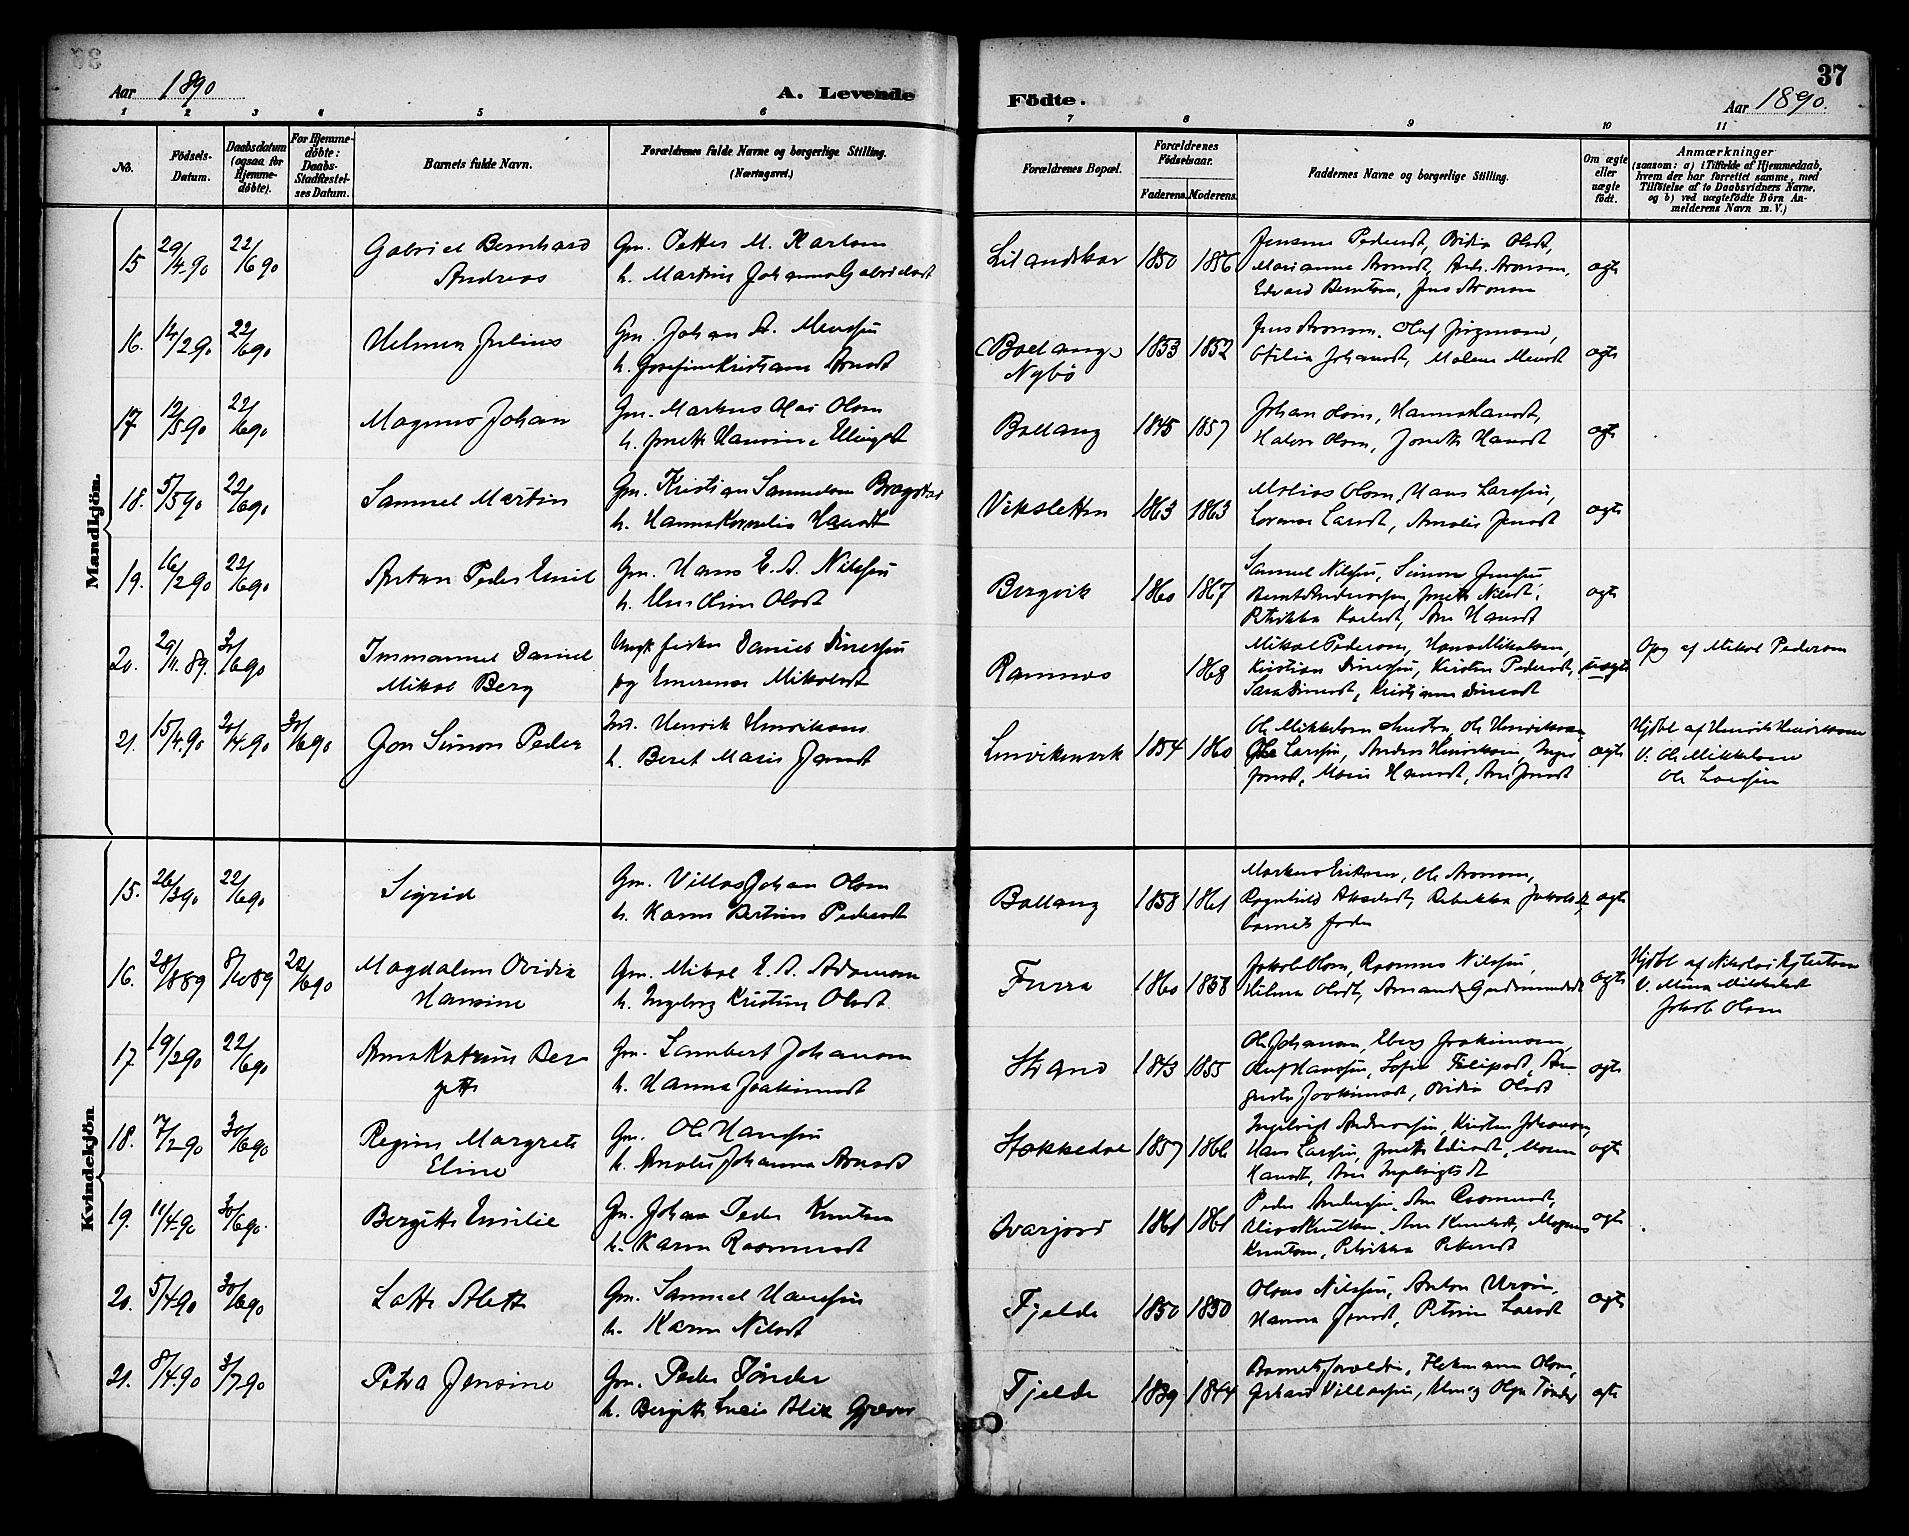 Aar 1890
A. Levende
Födte.
37
Aar 1890.
1 2 3 4 5 6 7 8 9 10 11
No.
Födsels-Datum.
Daabsdatum (ogsaa for Hjemme-döbte).
For Hjemme-döbte: Daabs-Stadfæstel-ses Datum.
Barnets fulde Navn.
Forældrenes fulde Navne og borgerlige Stilling. (Næringsvei.)
Forældrenes Bopæl.
Forældrenes Födselsaar.
Faderens. Moderens.
Faddernes Navne og borgerlige Stilling.
Om ægte eller uægte födt.
Anmærkninger
(saasom: a) i Tilfælde af Hjemmedaab,
hvem der har forrettet samme, med
Tilföielse af to Daabsvidners Navne,
og b) ved uægtefödte Börn An-
melderens Navn m. V.)
Mandkjön.
15 29/4 90 22/6 90 Gabriel Bernhard Andreas
Gm. Petter M. Karlsen
h. Martine Johanna Gabrielsdt
1850 1856
Jensine Pedersdt, Ovidia Olsdt,
Marianne Aronsdt, Aronsen,
Edvard Berntsen, Jens Aronsen
ægte
16. 14/2 90 22/6 90 Hilmen Julius
Gm. Johan A. Mensen
h. Josefine Kristiane Aronsdt
Ballang, Nybö 1853 1852
Jens Aronsen, Oluf
Otilia Johansdt, Malene
ægte
17 12/5 90 22/6 90 Magnus Johan
Gm. Markus Olai Olsen
h. Jonette Hansine
Ballang 1845 1857
Johan Olsen, Hanna Hansdt,
Olsen, Jonette Hansdt
ægte
18. 5/5 90 22/6 90 Samuel Martin
Gm. Kristian Samuelsen
h. Hanna Kornelia Hansdt
Viksletten 1863 1863
Matias Olsen, Hans Larssen,
Lorense Larsdt, Amalie Jensdt
ægte
19. 16/2 90 22/6 90 Anton Peder Emil
Gm. Hans E. A. Nilssen
h. Olsdt
Bergvik 1860 1867
Samuel Nilssen, Simon Jenssen,
Bernt Andreassen, Jonette Nilsdt,
Rebekka Karlsdt, Ane Hansdt
ægte
20. 29/11 89. 30/6 90 Immanuel Daniel Mikal Berg
Ungk fisker Daniel Dinessen
pg Emerense Mikalsdt
Ramnos 1868
Mikal Pedersen, Hans Mikalsen,
Kristian Dinessen, Kirsten Pedersdt,
Sara Dinesdt, Kristiane Dinesdt
uægte
Opg af Mikal Pedersen
21. 15/4 90 20/4 90 30/6 90 Jon Simon Peder
Ind. Henrik Henriksen
h. Beret Marie Jonsdt
1854 1860
Ole Mikkelsen, Ole Henriksen,
Ole Larssen, Anders Henriksen, Inger
Jonsdt, Marie Hansdt, Ane Jonsdt
ægte
Hjdbt af Henrik Henriksen
V: Ole Mikkelsen
Ole Larssen
Kvindekjön
15. 26/3 90 22/6 90 Sigrid
Gm. Villas Johan Olsen
h. Karen Bertine Pedersdt
Ballang 1858 1861
Markus Eriksen, Ole Aronsen,
Ragnhild Akseldt, Rebekka Jakobsdt,
barnets fader
ægte
16. 28/8 89 8/10 89 22/6 90 Magdalene Ovidia Hansine
Gm. Mikal E. A. Adamsen
h. Ingeborg Kristine Olsdt
Furra 1860 1858
Jakob Olsen, Rasmus Nilssen,
Hilma Olsdt, Amanda Gudmundsdt
ægte
Hjdbt af Nikolai
V. Mina
Jakob Olsen
17. 19/2 90 22/6 90 Anna Katrine Ber gitte
Gm. Lambert Johansen
h. Hanna Joakimsdt
Strand 1843 1855
Ole Johansen, Joakimsen,
Oluf Hanssen, Sofie Filipsdt, Au-
gusta Joakimsdt, Ovidia Olsdt
ægte
18. 7/2 90 30/6 90 Regine Margrete Eline
Gm. Ole Hanssen
h. Amalie Johanna Aronsdt
Stokkedal 1857 1866
Ingebrigt Andreassen, Kristen Johansen,
Hans Larssen, Jonette Maren
Hansdt, Ane Ingebrigtsdt
ægte
19. 11/4 90 30/6 90. Bergitte Emilie
Gm. Johan Peder Knutsen
h. Karen Rasmusdt
Evarjord 1861 1861
Peder Anderssen, Ane Rasmusdt,
Knutsen, Ane Knutsdt, Magnus
Knutsen, Petrikka Pettersdt
ægte
20. 5/4 90 30/6 90 Lotte Alette
Gm. Samuel Hanssen
h. Karen Nilsdt
Fjelde 1850 1850
Olaus Nilssen, Anton
Hanna Jensdt, Petrine Larsdt
ægte
21. 8/4 90 3/7 90 Petra Jensine
Gm. Peder Tönder
h. Bergitte Lucie Alix
Fjelde 1839 1844
Barnets forældre, Hekman Olsen,
Johan Villassen, Olga Tönder
ægte